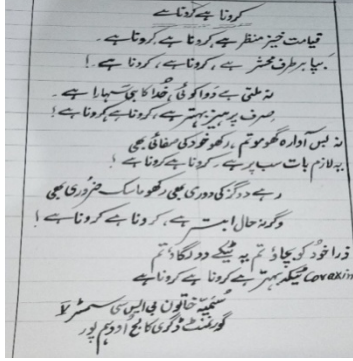 کرونا ہے کرونا ہے
قیامت خیز منظر ہے کرونا ہے کرونا ہے۔
بپا ہر طرف محشر ہے، کرونا ہے، کرونا ہے۔!
نہ ملتی ہے دوا کوئی، خُدا کا ہی سہارا ہے۔
صرف پرہیز بہتر ہے، کرونا ہے کرونا ہے!
نہ بس آوارہ گھومو تم، رکھو خود کی صفائی بھی
یہ لازم بات سب پر ہے۔ کرونا ہے کرونا ہے!
رہے دو گز کی دوری بھی رکھو ماسک ضروری بھی
وگرنہ حال ابتر ہے، کرونا ہے کرونا ہے!
ذرا خود کو بچاؤ تم یہ ٹیکے دو لگاؤ تم
Covaxin ٹیکہ بہتر ہے کرونا ہے کرونا ہے
سُمیّہ خاتون بی ایس سی سمسٹر
گورنمنٹ ڈگری کالج اودہم پور